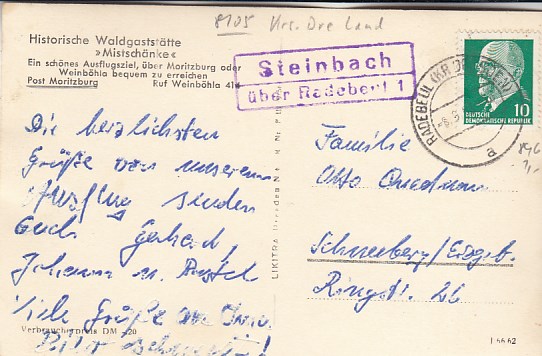 8105 Krs. Dre Land
Historische Waldgaststätte
»Mistschänke«
Ein schönes Ausflugsziel, über Moritzburg oder
Weinböhla bequem zu erreichen
Post Moritzburg Ruf Weinböhla 41
Steinbach
über Radebeul 1
RADEBEUL (KR DRESDEN)
a
10
DEUTSCHE
DEMOKRATISCHE REPUBLIK
Die herzlichsten
Grüße von unserem
Ausflug senden
Euch Gerhard,
Johanna u.
Viele Grüße
Familie
Otto
Schneeberg/Erzgeb.
Ringstr. 26
LIKITRA Dresden
Verbraucherpreis DM -,20